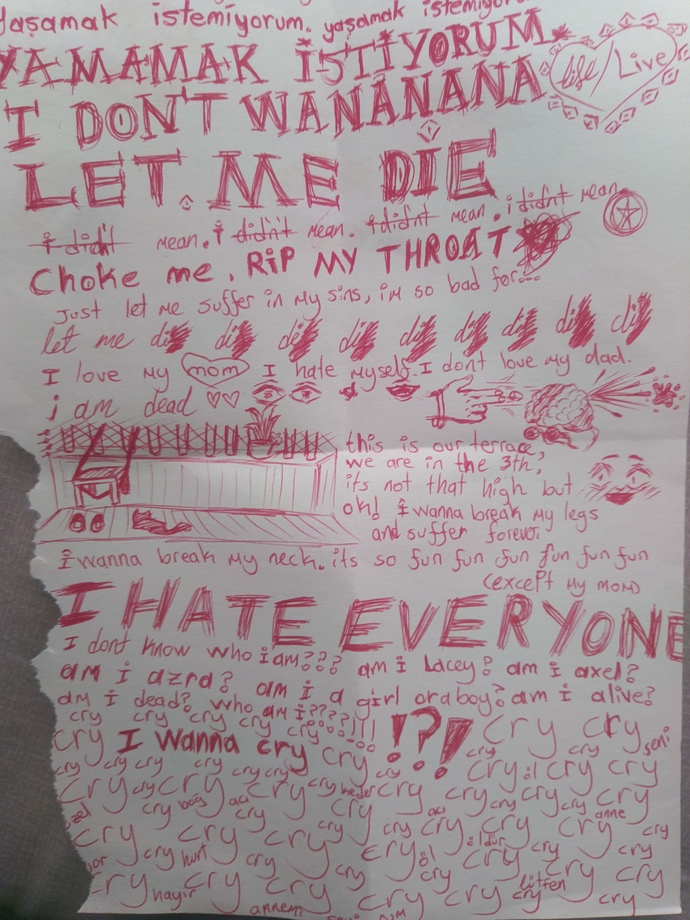 yaşamak istemiyorum. yaşamak istemiyor
YAMAMAK İSTİYORUM.
life/Live
I DON'T WANANANA
LET ME DIE
i didn't mean. i didn't mean. i didnt mean. i didnt mean.
Choke me. RIP MY THROAT
Just let me suffer in my sins, im so bad for...
let me die die die die die die die die die
I love my mom I hate myself. I dont love my dad.
i am dead
this is our terrace,
we are in the 3th,
its not that high but
ok! i wanna break my legs
and suffer forever.
i wanna break my neck. its so fun fun fun fun fun fun
(except my mom)
I HATE EVERYONE
I dont know who i am??? am i Lacey? am i axel?
am i azra? am i a girl or a boy? am i alive?
am i dead? who am i????!!! !?!
cry cry cry cry cry cry cry
cry I wanna cry cry cry cry seni
cry cry cry cry cry cry cry cry öl cry cry
cry cry cry cry cry cry cry cry cry
cry boğ acı cry cry acı cry cry anne
cry cry cry cry cry cry cry öldür cry
cry hurt cry cry cry öl cry cry
cry hayır cry cry cry cry lütfen cry
annem